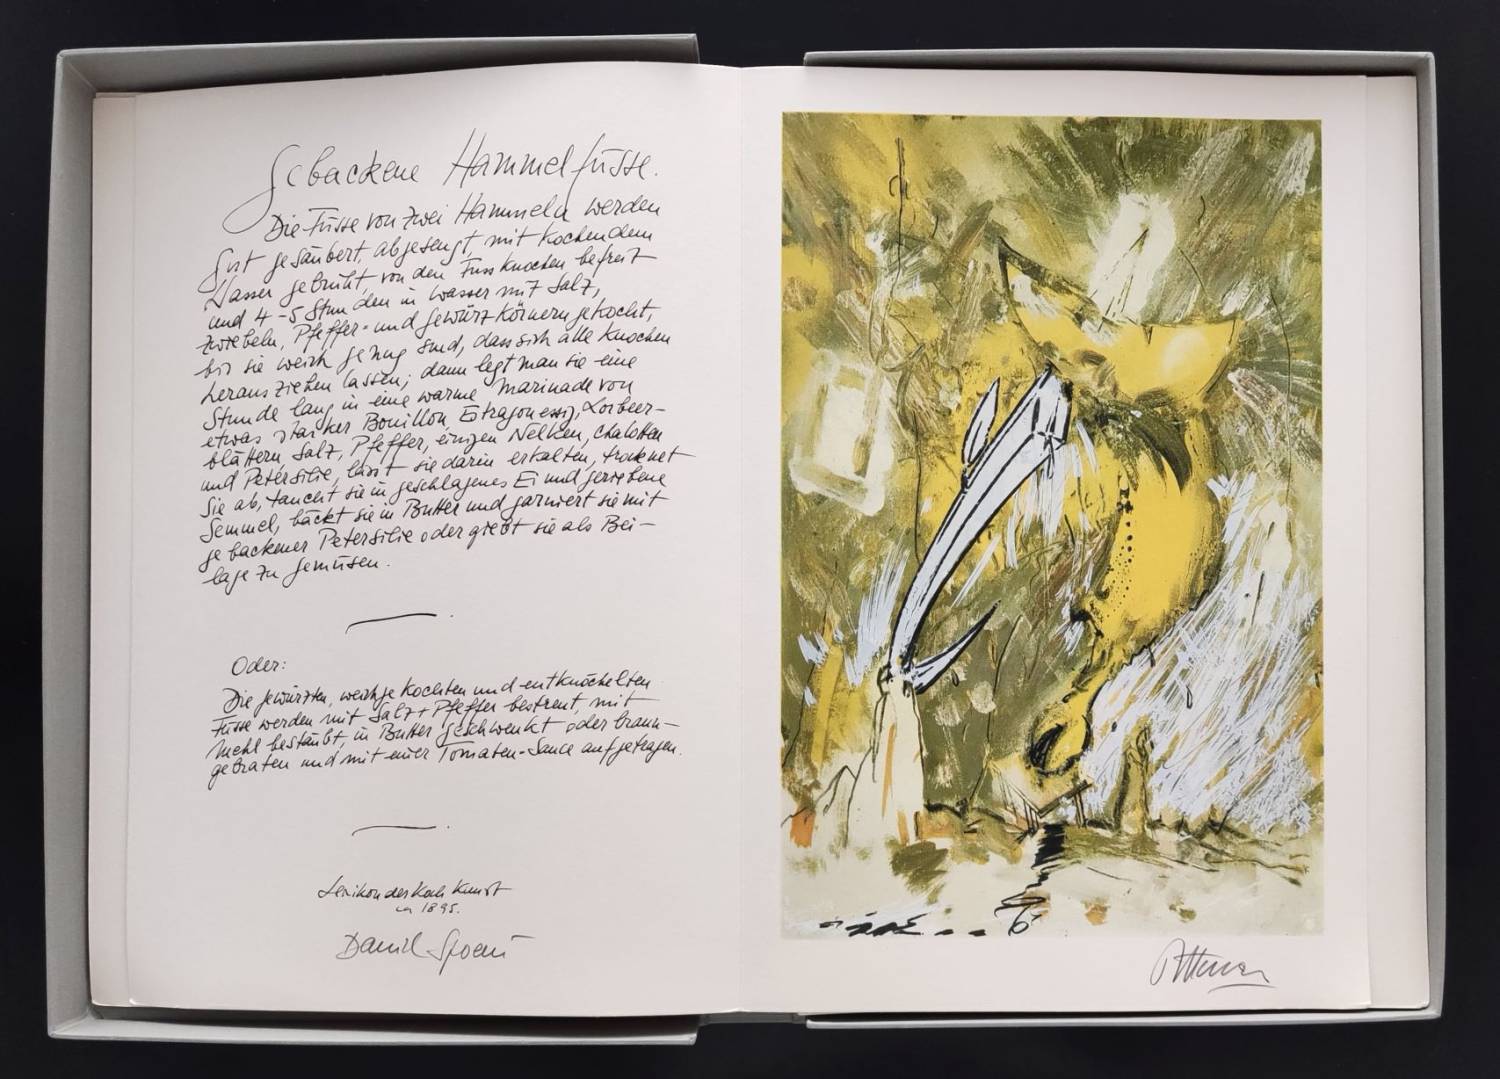 Gebackene Hammelfüsse.
Die Füsse von zwei Hammeln werden
gut gesäubert, abgesengt, mit kochendem
Wasser gebrüht, von den Fussknochen befreit
und 4-5 Stunden in Wasser mit Salz,
Zwiebeln, Pfeffer- und Gewürzkörnern gekocht,
bis sie weich genug sind, dass sich alle Knochen
heraus ziehen lassen; dann legt man sie eine
Stunde lang in eine warme Marinade von
etwas starker Bouillon, Estragonessig, Lorbeer-
blättern, Salz, Pfeffer, einigen Nelken, Chalotten
und Petersilie, lässt sie darin erkalten, trocknet
sie ab, taucht sie in geschlagenes Ei und geriebene
Semmel, bäckt sie in Butter und garniert sie mit
gebackener Petersilie oder giebt sie als Bei-
lage zu Gemüsen.
Oder:
Die gewürzten, weichgekochten und entknöchelten
Füsse werden mit Salz + Pfeffer bestreut, mit
Mehl bestäubt, in Butter geschwenkt oder braun-
gebraten und mit einer Tomaten-Sauce aufgetragen.
Lexikon der Koch Kunst
ca 1895.
Daniel Spoerri